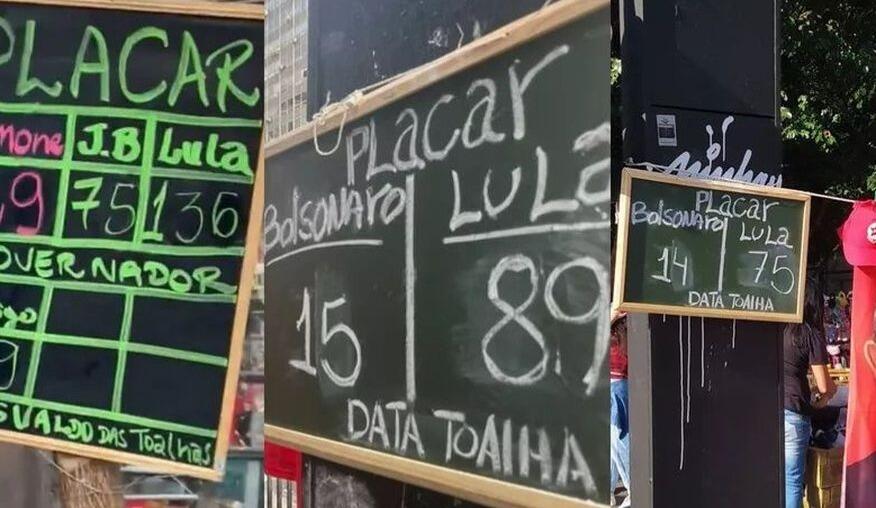 PLACAR
mone J.B Lula
9 75 136
OVERNADOR
SVALDO DAS Toalhas
PLacar
Bolsonaro LULa
15 89
DATA TOALHA
PLacar
Bolsonaro LULa
14 75
DATA TOALHA